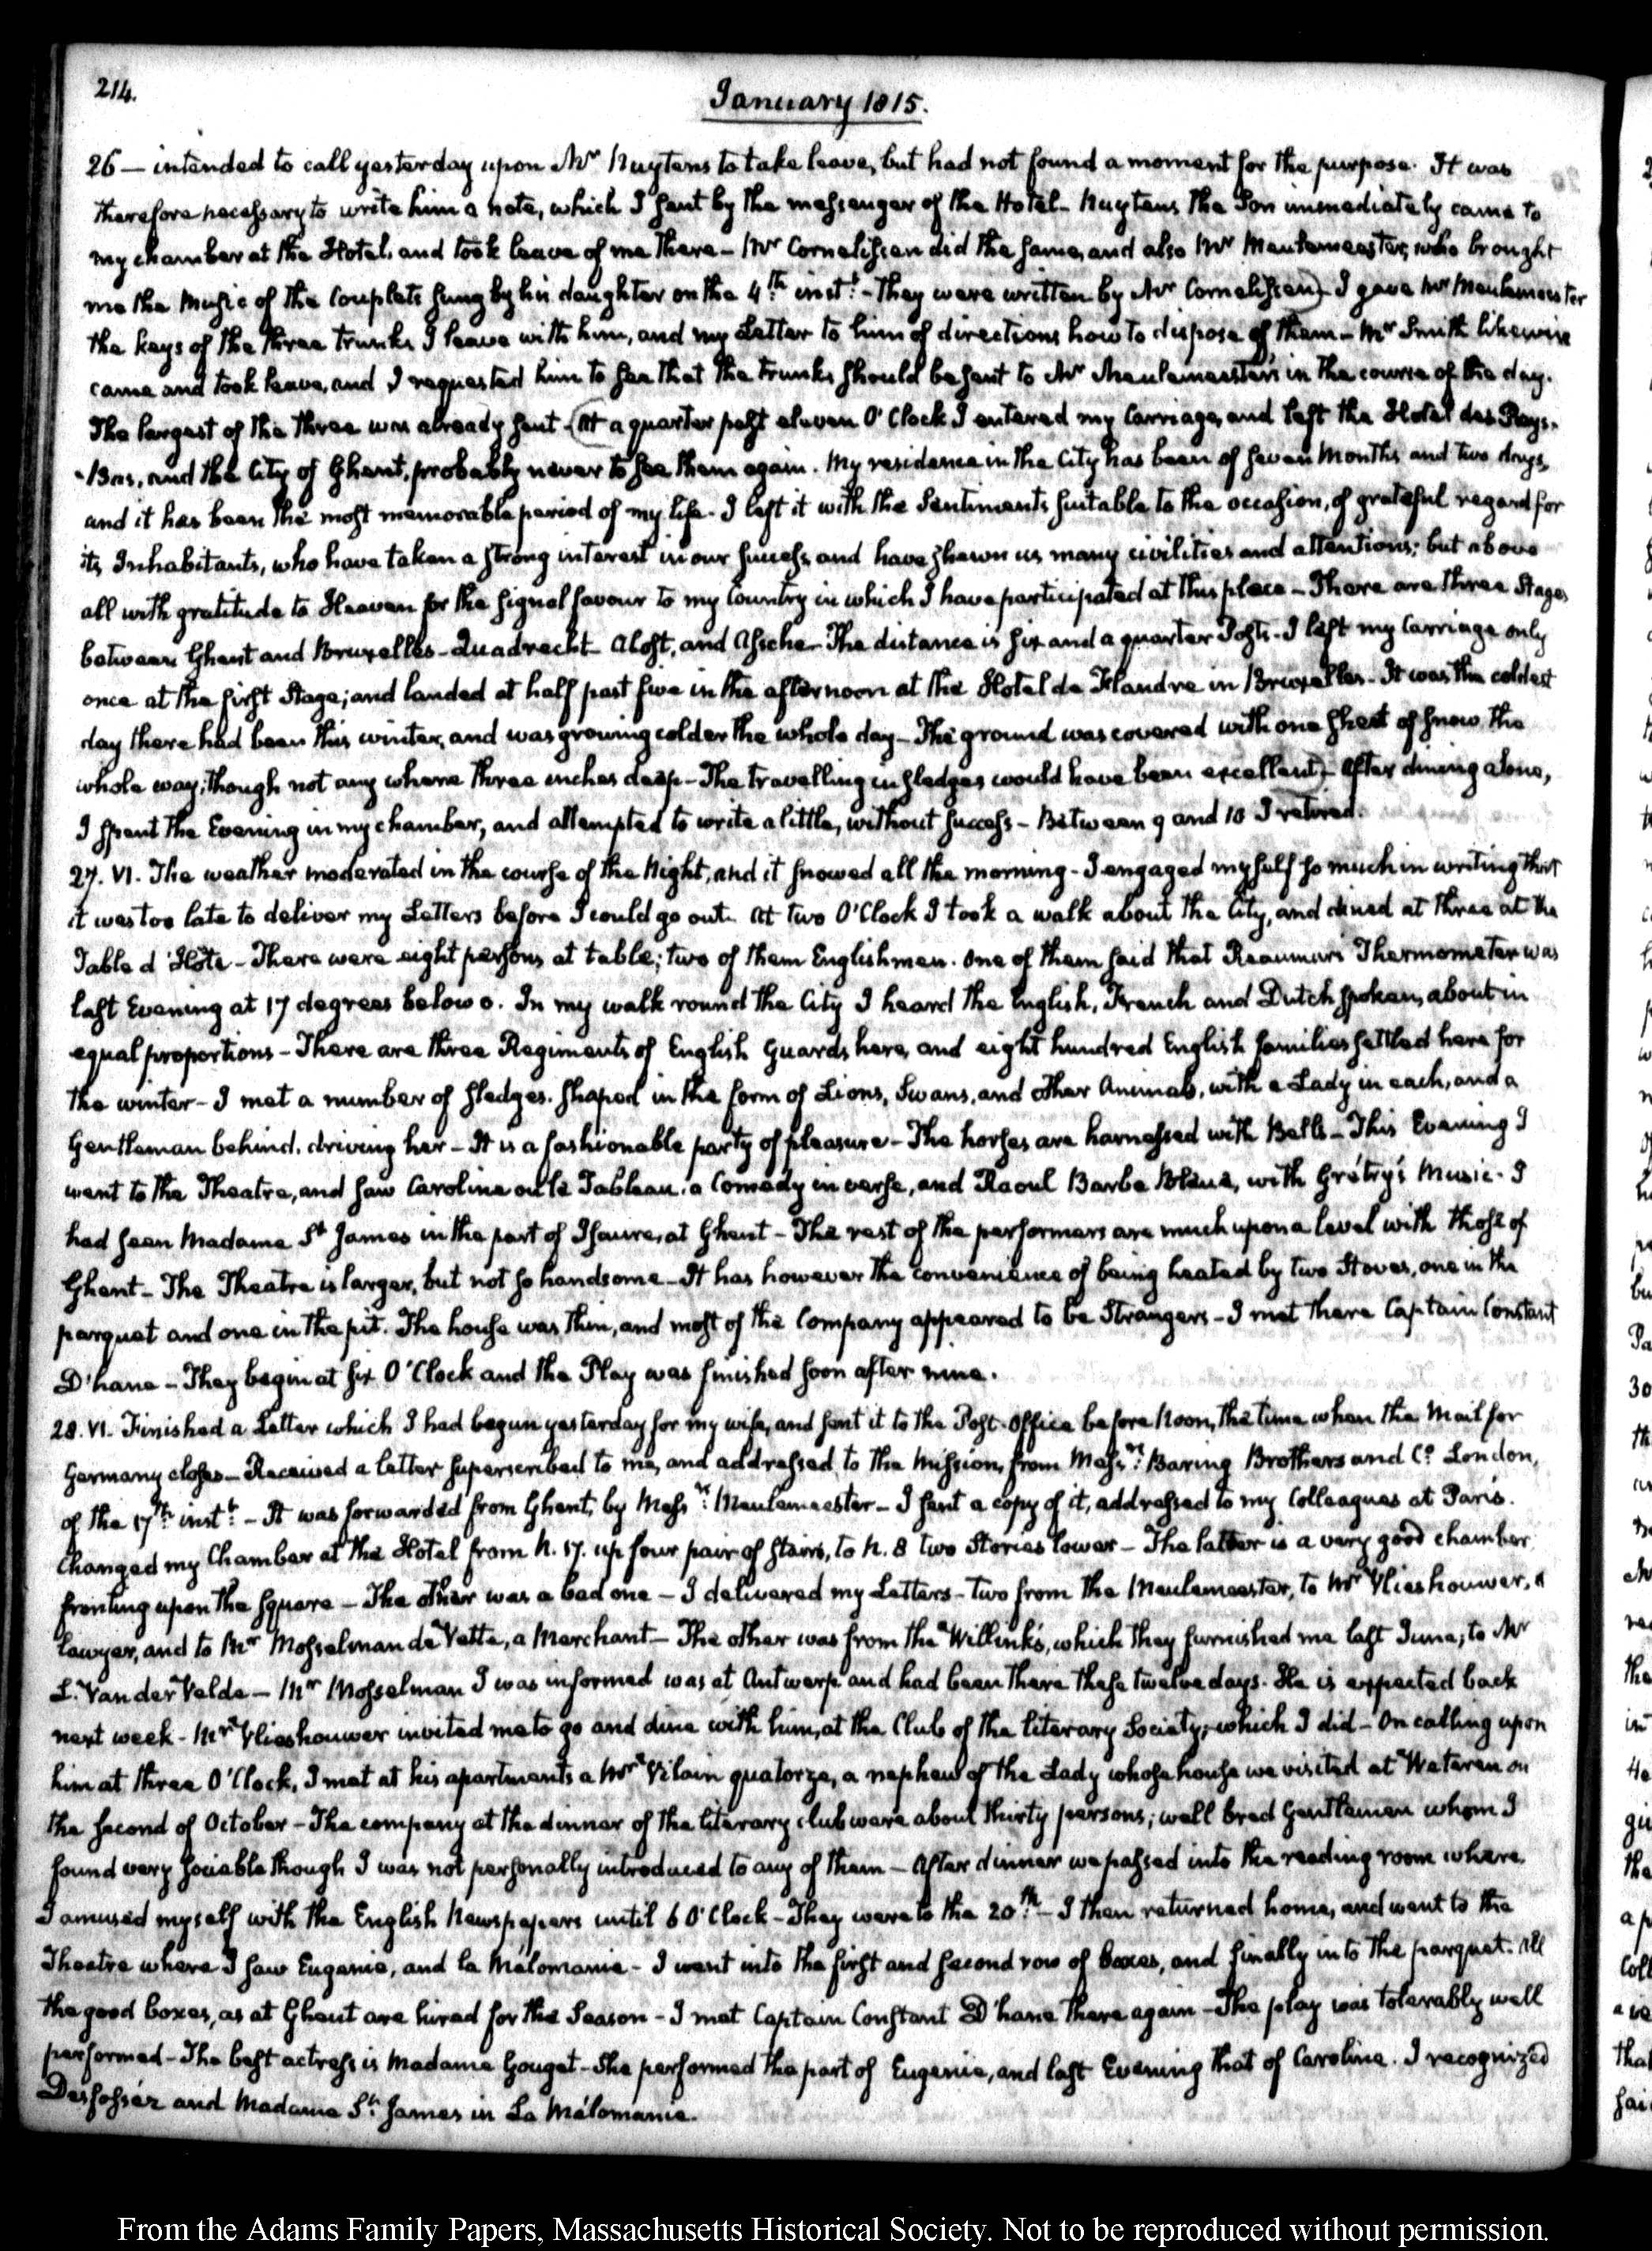 214.
January 1815.
26 — intended to call yesterday upon Mr Huytens to take leave, but had not found a moment for the purpose. It was
therefore necessary to write him a note, which I sent by the messenger of the Hotel — Huytens the Son immediately came to
my chamber at the Hotel, and took leave of me there — Mr Cornelissen did the same, and also Mr Meulemeester, who brought
me the Music of the Couplets sung by his daughter on the 4th. inst:t — They were written by Mr Cornelissen) I gave Mr Meulemeester
the keys of the three trunks I leave with him, and my Letter to him of directions how to dispose of them — Mr Smith likewise
came and took leave, and I requested him to see that the trunks should be sent to Mr Meulemeester's in the course of the day.
The largest of the three was already sent — (At a quarter past eleven O'Clock I entered my Carriage, and left the Hotel des Pays-
-Bas, and the City of Ghent, probably never to see them again. My residence in the City has been of seven Months and two days,
and it has been the most memorable period of my life. I left it with the Sentiments suitable to the occasion, of grateful regard for
its Inhabitants, who have taken a strong interest in our success, and have shewn us many civilities and attentions; but above
all with gratitude to Heaven for the signal favour to my Country in which I have participated at this place — There are three Stages
between Ghent and Bruxelles — Quadrecht — Alost, and Assche — The distance is six and a quarter Posts. I left my Carriage only
once at the first Stage; and landed at half past five in the afternoon at the Hotel de Flandre in Bruxelles. It was the coldest
day there had been this winter, and was growing colder the whole day — The ground was covered with one sheet of snow the
whole way; though not any where three inches deep — The travelling in sledges would have been excellent) — After dining alone,
I spent the Evening in my chamber, and attempted to write a little, without success — Between 9 and 10 I retired.
27. VI. The weather moderated in the course of the Night, and it snowed all the morning — I engaged myself so much in writing that
it was too late to deliver my Letters before I could go out. At two O'Clock I took a walk about the City, and dined at three at the
Table d'Hôte — There were eight persons at table; two of them Englishmen. One of them said that Reaumur's Thermometer was
last Evening at 17 degrees below 0. In my walk round the City I heard the English, French and Dutch spoken, about in
equal proportions — There are three Regiments of English Guards here, and eight hundred English families settled here for
the winter — I met a number of sledges, shaped in the form of Lions, Swans, and other Animals, with a Lady in each, and a
Gentleman behind, driving her — It is a fashionable party of pleasure — The horses are harnessed with Bells — This Evening I
went to the Theatre, and saw Caroline ou le Tableau, a Comedy in verse, and Raoul Barbe Bleue, with Grétry's Music. I
had seen Madame St James in the part of Isaure, at Ghent — The rest of the performers are much upon a level with those of
Ghent — The Theatre is larger, but not so handsome — It has however the convenience of being heated by two Stoves, one in the
parquet and one in the pit. The house was thin, and most of the Company appeared to be Strangers — I met there Captain Constant
D'hane — They begin at six O'Clock and the Play was finished soon after nine.
28. VI. Finished a Letter which I had begun yesterday for my wife, and sent it to the Post-Office before Noon, the time when the Mail for
Germany closes — Received a letter superscribed to me, and addressed to the Mission, from Messrs: Baring Brothers and Co. London,
of the 17th: inst:t — It was forwarded from Ghent, by Messrs: Meulemeester — I sent a copy of it, addressed to my Colleagues at Paris.
Changed my Chamber at the Hotel from N. 57. up four pair of stairs, to N. 8 two Stories lower — The latter is a very good chamber
fronting upon the square — The other was a bad one — I delivered my Letters — Two from the Meulemeester, to Mr Vlieshouwer, a
Lawyer, and to Mr Mosselman de Vette, a Merchant — The other was from the Willink's, which they furnished me last June, to Mr
L. Van der Velde — Mr Mosselman I was informed was at Antwerp and had been there these twelve days. He is expected back
next week — Mr Vlieshouwer invited me to go and dine with him, at the Club of the literary Society, which I did — On calling upon
him at three O'Clock, I met at his apartments a Mr Vilain quatorze, a nephew of the Lady whose house we visited at Wateren on
the second of October — The company at the dinner of the literary club were about thirty persons; well bred Gentlemen whom I
found very sociable though I was not personally introduced to any of them — After dinner we passed into the reading room where
I amused myself with the English Newspapers until 6 O'Clock — They were to the 20th: — I then returned home, and went to the
Theatre where I saw Eugenie, and la Mélomanie — I went into the first and second row of boxes, and finally into the parquet. All
the good boxes, as at Ghent are hired for the Season — I met Captain Constant D'hane there again — The play was tolerably well
performed — The best actress is Madame Gouget — She performed the part of Eugenie, and last Evening that of Caroline. I recognized
Desfossez and Madame St. James in La Mélomanie.
From the Adams Family Papers, Massachusetts Historical Society. Not to be reproduced without permission.